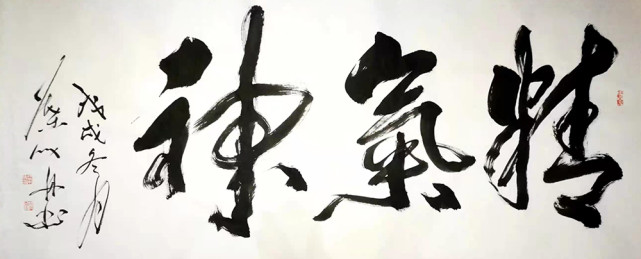 精氣神
戊戌冬月